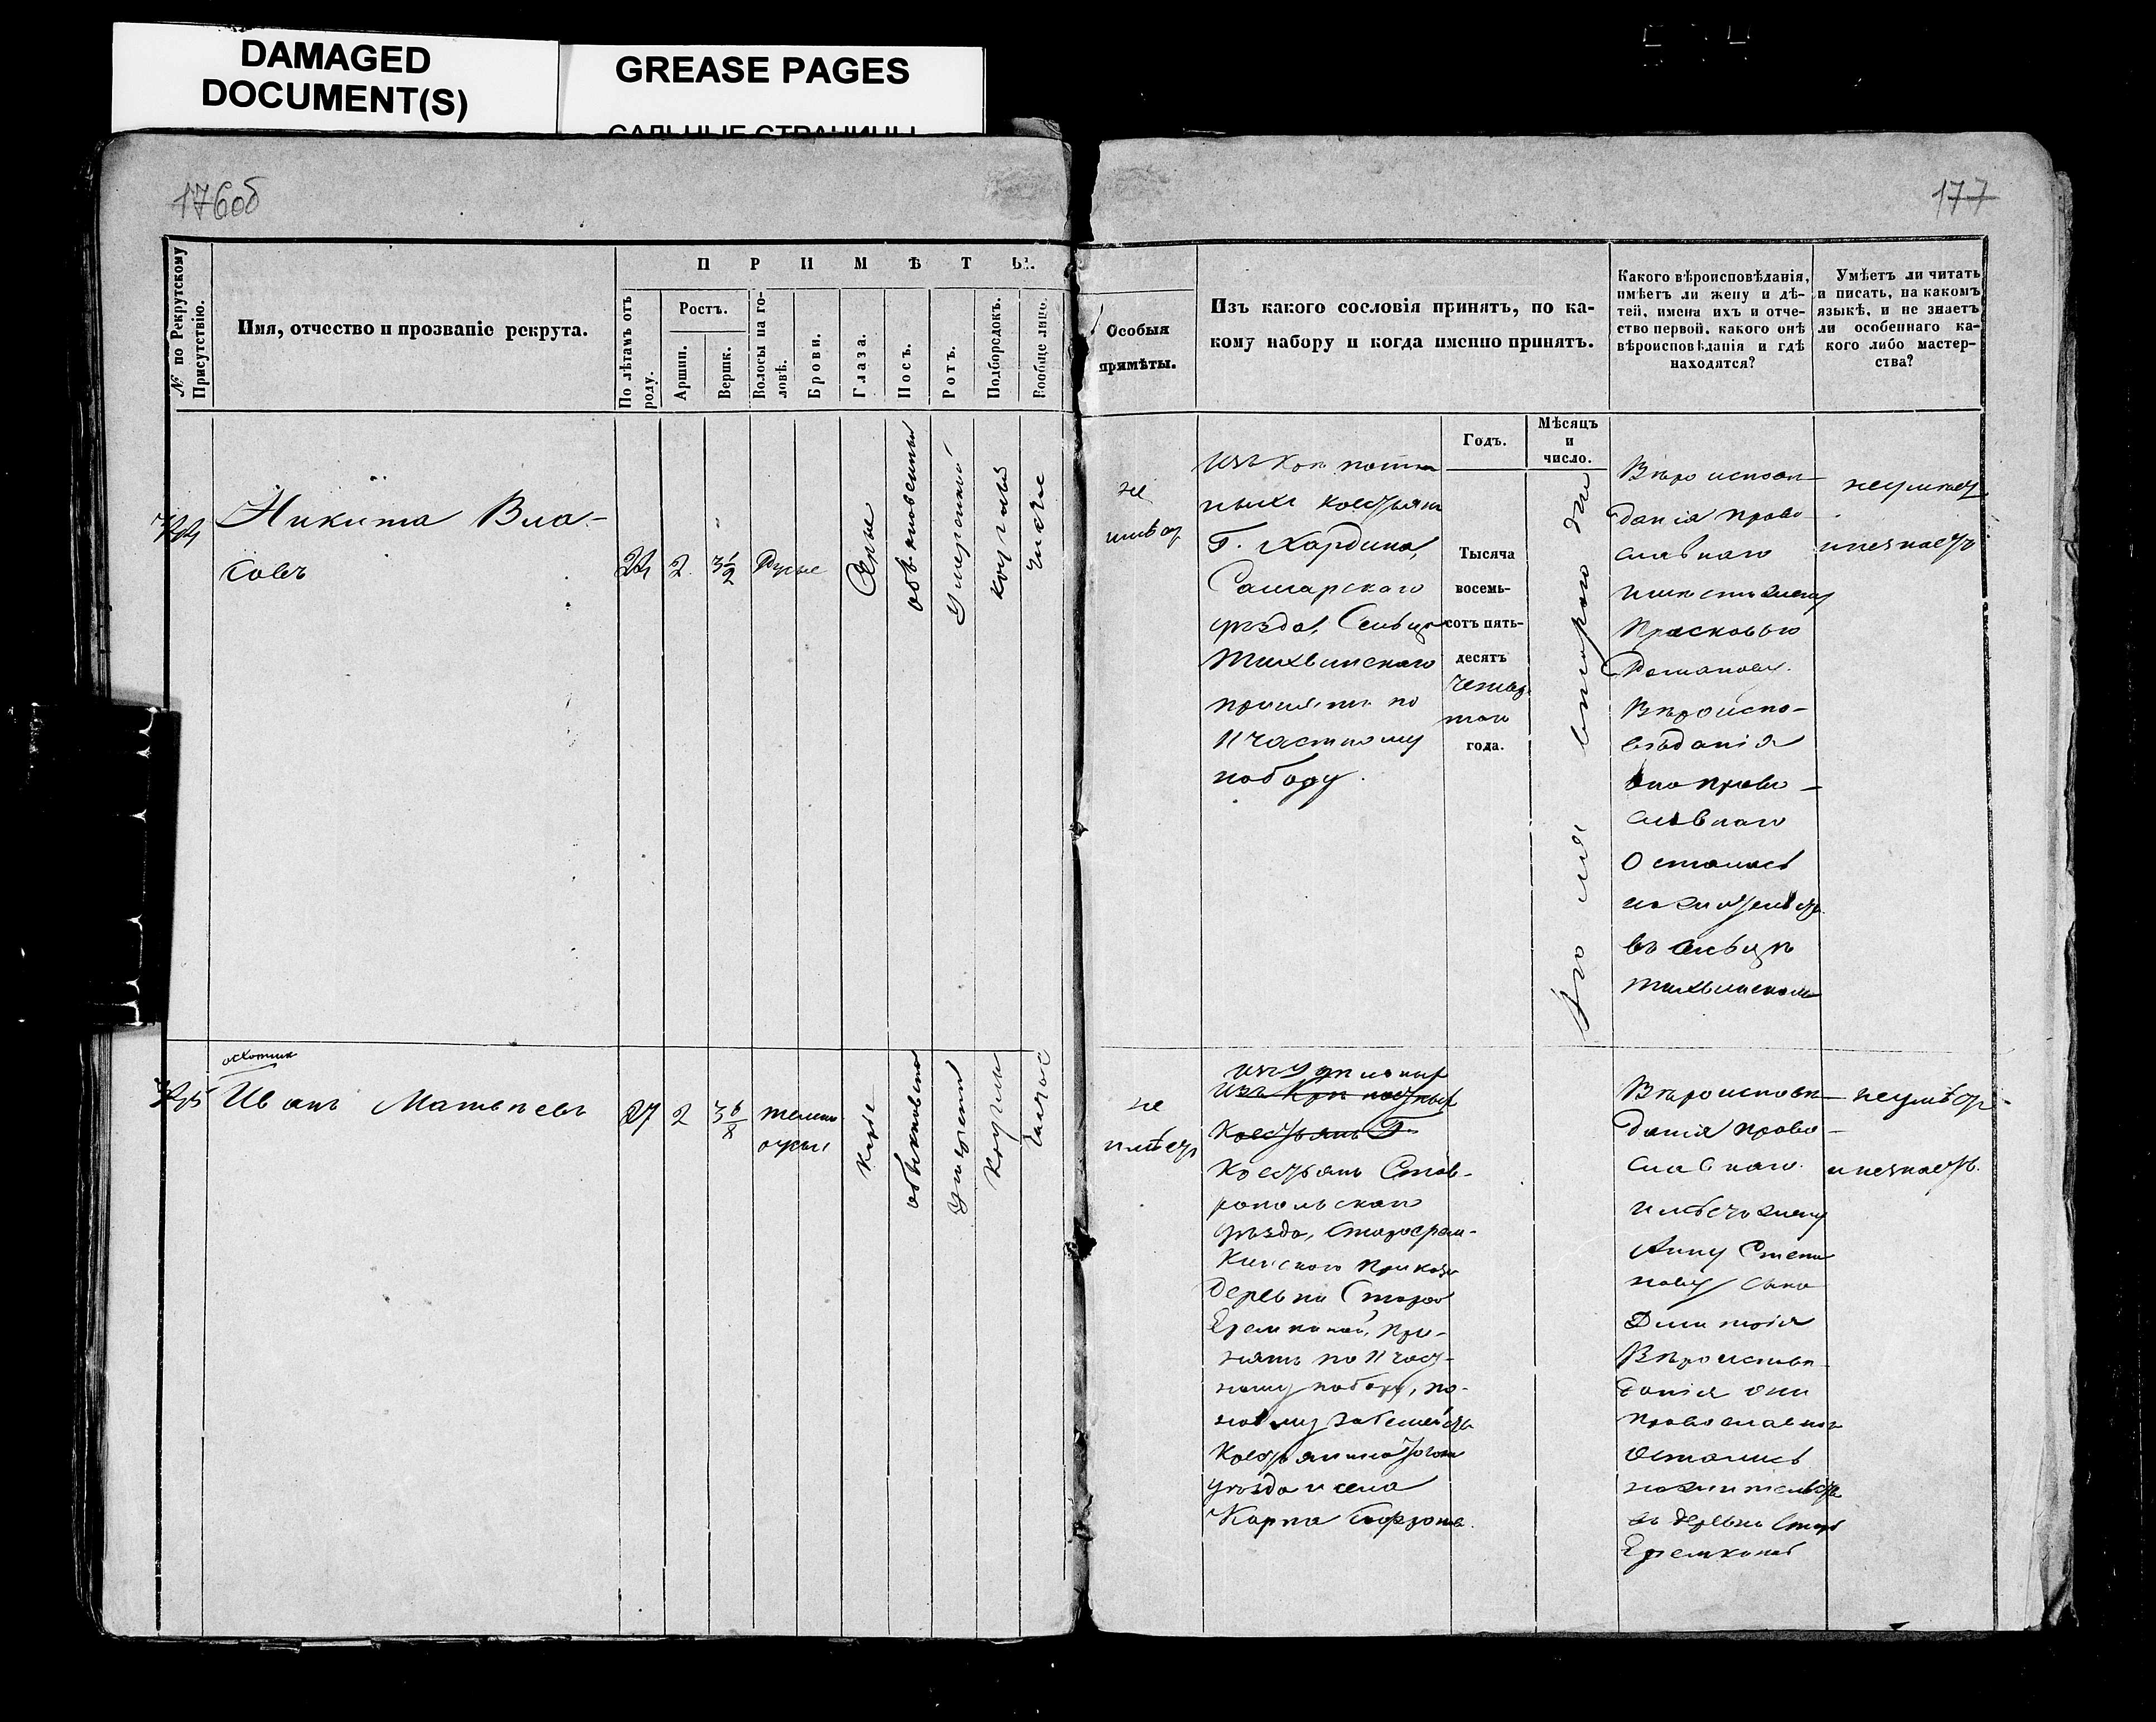 DAMAGED
DOCUMENT(S)
GREASE PAGES
САЛЬНЫЕ СТРАНИЦЫ
176об
177
№ по Рекрутскому
Присутствію.
Имя, отчество и прозваніе рекрута.
ПРИМѢТЫ.
По лѣтамъ отъ
роду.
Ростъ.
Аршин.
Вершк.
Волосы на го-
ловѣ.
Брови.
Глаза.
Носъ.
Ротъ.
Подбородокъ.
Вообще лицо.
Особыя
примѣты.
Изъ какого сословія принятъ, по ка-
кому набору и когда именно принятъ.
Какого вѣроисповѣданія,
имѣетъ ли жену и дѣ-
тей, имена ихъ и отче-
ство первой, какого онѣ
вѣроисповѣданія и гдѣ
находятся?
Умѣетъ ли читать
и писать, на какомъ
языкѣ, и не знаетъ
ли особеннаго ка-
кого либо мастер-
ства?
Годъ.
Мѣсяцъ
и
число.
Никита Вла-
совъ
24
2
3 1/2
Русые
Серые
обыкновенный
Умеренный
круглый
чистое
не
имѣет
ныхъ крестьян
Г. Хардина,
Самарскаго
уѣзда, Сельца
Тихвинскаго
принятъ по
11 частному
набору.
Тысяча
восемь-
сотъ пять-
десятъ
четвер
таго
года.
Вѣроиспов-
данія право-
славнаго
имѣетъ жену
Прасковью
Романову.
Вѣроиспо-
вѣданія
она право-
славнаго
Осталась
на жительств
въ сельцѣ
Тихвинском
неумѣет
и незнаетъ
охотник
Иванъ Матвѣевъ
27
2
3 6/8
темно
русые
Карие
обыкновенно
умерен
Кругл
Чистое
не
имѣет
изъ Удѣльных
Изъ Крѣпостных
Крестьянъ Г.
Крестьянъ Став-
ропольскаго
уѣзда, Староерем-
кинскаго приказа
Деревни Старой
Еремкиной, при-
нятъ по 11 част-
ному набору, по
найму за семейств
Крестьянина того
уѣзда и села
Карпа
Вѣроисповѣ-
данія право-
славнаго.
имѣетъ жену
Анну Степа
нову, сына
Дмитрія
Вѣроисповѣ
данія они
православнаго
Остались
на жительств
въ деревнѣ Стар
Еремкиной
неумѣет
и незнаетъ.